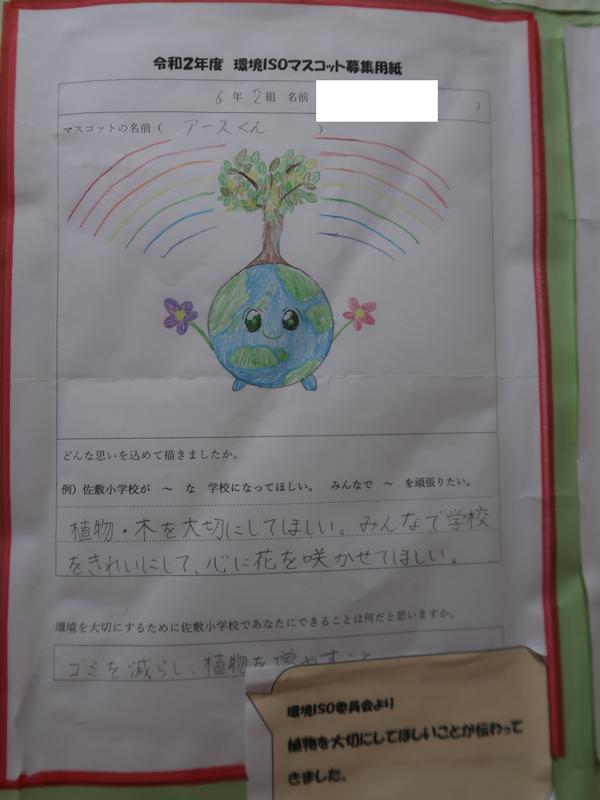 令和2年度 環境ISOマスコット募集用紙
6 年 2 組 名前 )
マスコットの名前 ( アースくん )
どんな思いを込めて描きましたか。
例) 佐敷小学校が ～ な 学校になってほしい。 みんなで ～ を頑張りたい。
植物・木を大切にしてほしい。みんなで学校
をきれいにして、心に花を咲かせてほしい。
環境を大切にするために佐敷小学校であなたにできることは何だと思いますか。
ゴミを減らし、植物を増やすこと
環境ISO委員会より
植物を大切にしてほしいことが伝わって
きました。